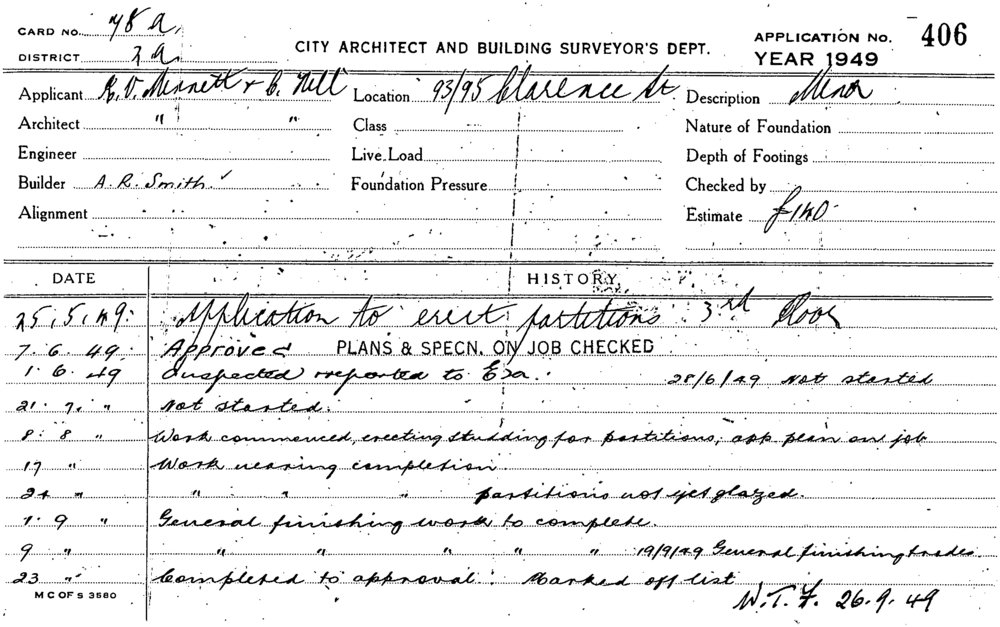 CARD NO. 78 a.
DISTRICT 2 a.
CITY ARCHITECT AND BUILDING SURVEYOR'S DEPT.
APPLICATION NO. 406
YEAR 1949
Applicant R. V. Minnett & C. Nell Location 93/95 Clarence St Description Minor
Architect " " Class Nature of Foundation
Engineer Live Load Depth of Footings
Builder A. R. Smith. Foundation Pressure Checked by
Alignment Estimate £140
DATE HISTORY
25.5.49. Application to erect partitions 3rd Floor
7.6.49. Approved PLANS & SPECN. ON JOB CHECKED
1.6.49 Inspected & reported to 28/6/49 Not started
21.7. " Not started.
8.8 " Work commenced, erecting studding for partitions, app plan on job
17 " Work nearing completion
24 " " " " partitions not yet glazed.
1.9 " General finishing work to complete.
9 " " " " " " 19/9/49 General finishing trades.
23 " Completed to approval. Marked off list
M C OF S 3580
W.T.F. 26.9.49